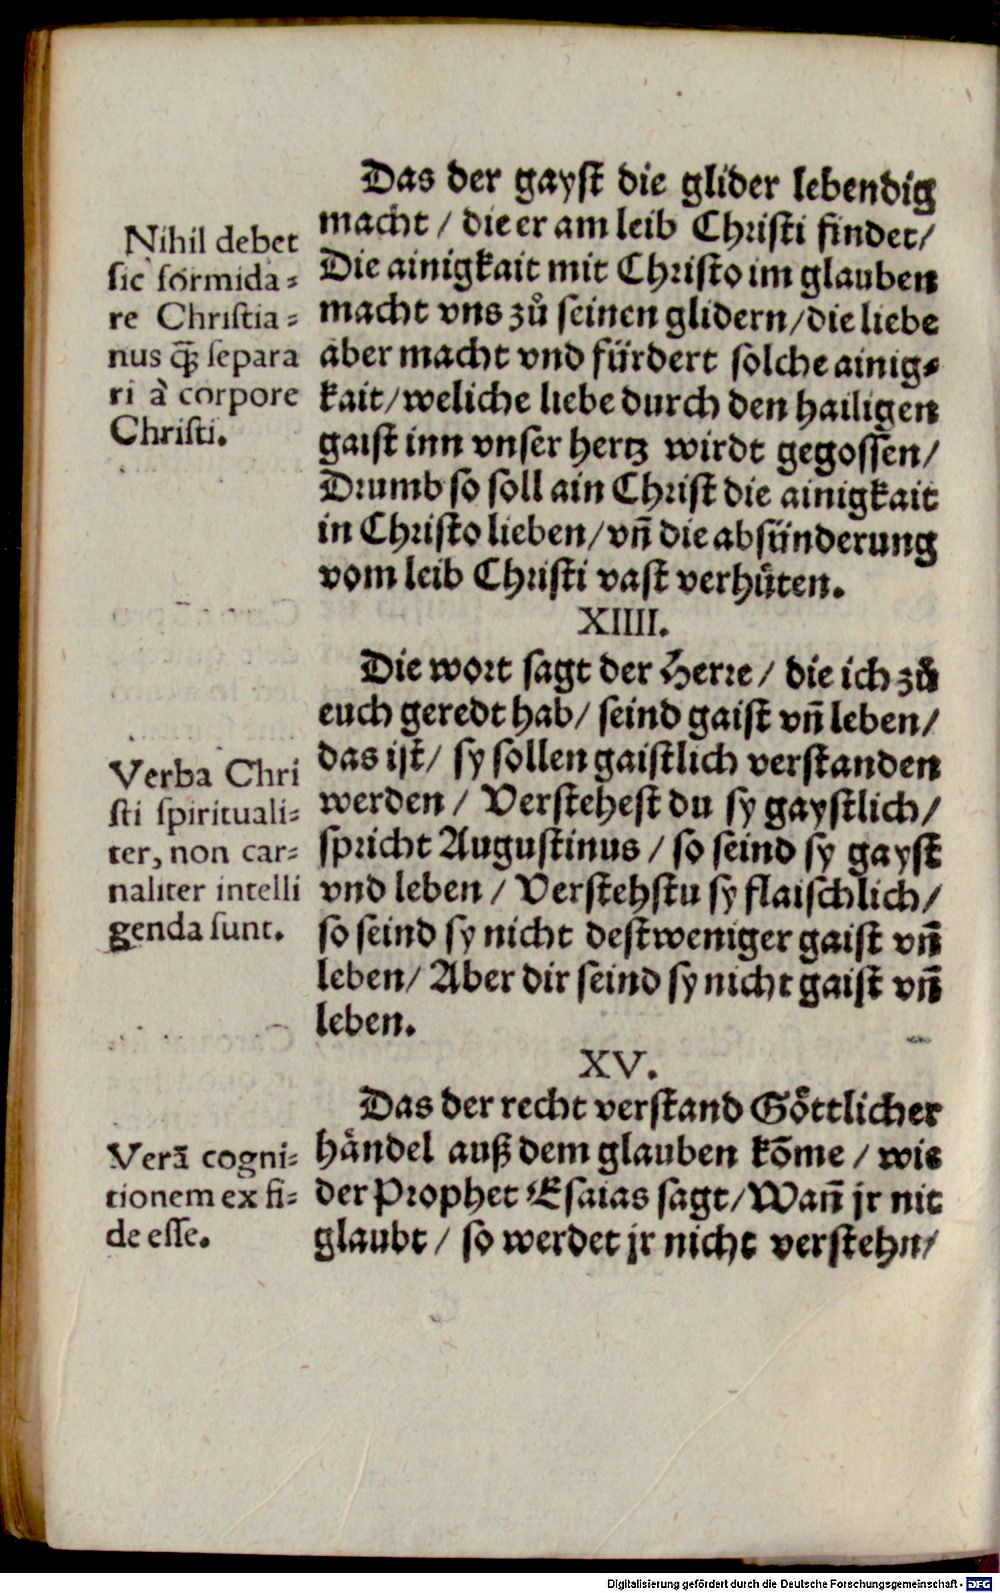 Das der gayst die glider lebendig
macht / die er am leib Christi findet/
Die ainigkait mit Christo im glauben
macht vns zů seinen glidern/die liebe
aber macht vnd fürdert solche ainig⸗
kait/weliche liebe durch den hailigen
gaist inn vnser hertz wirdt gegossen/
Drumb so soll ain Christ die ainigkait
in Christo lieben/vñ die absünderung
vom leib Christi vast verhüten.
Nihil debet
sic formida⸗
re Christia⸗
nus q̃ separa
ri à corpore
Christi.
XIIII.
Die wort sagt der Herre/ die ich zů
euch geredt hab/ seind gaist vñ leben/
das ist/ sy sollen gaistlich verstanden
werden / Verstehest du sy gaystlich/
spricht Augustinus / so seind sy gayst
vnd leben / Verstehstu sy flaischlich/
so seind sy nicht destweniger gaist vñ
leben/ Aber dir seind sy nicht gaist vñ
leben.
Verba Chri
sti spirituali⸗
ter, non car⸗
naliter intelli
genda sunt.
XV.
Das der recht verstand Göttlicher
händel auß dem glauben kõme / wie
der Prophet Esaias sagt/Wañ jr nit
glaubt / so werdet jr nicht verstehn/
Verã cogni⸗
tionem ex fi⸗
de esse.
Digitalisierung gefördert durch die Deutsche Forschungsgemeinschaft - DFG